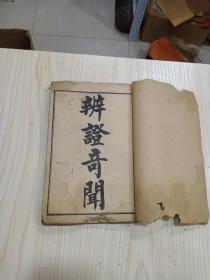 辨證奇聞